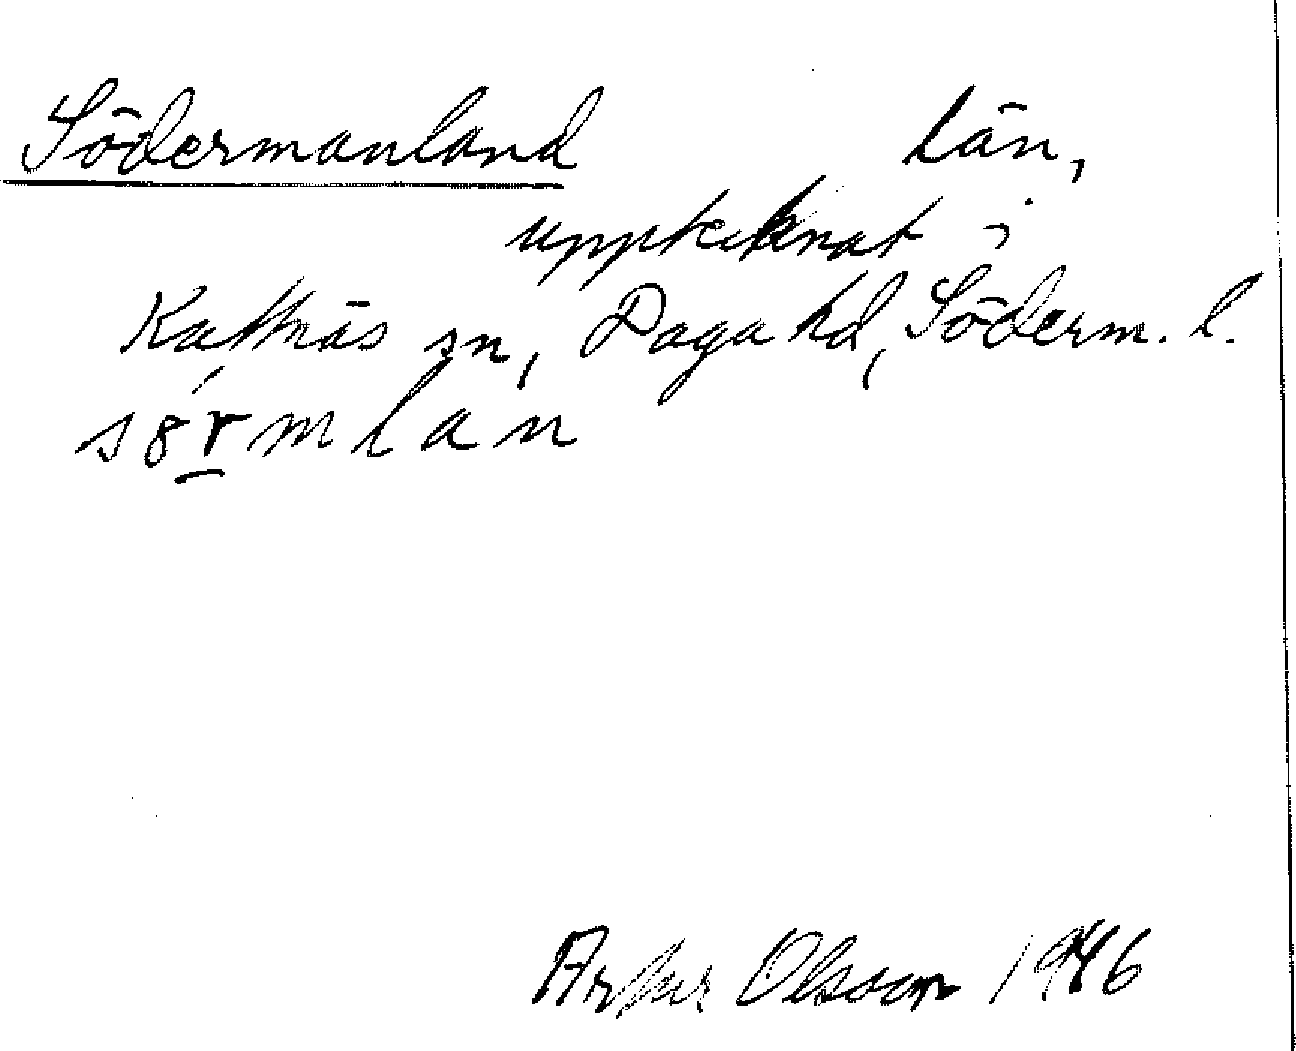 Södermanland län,
upptecknat i
Kattnäs sn, Daga hd, Söderm. l.
Artur Olsson 1946